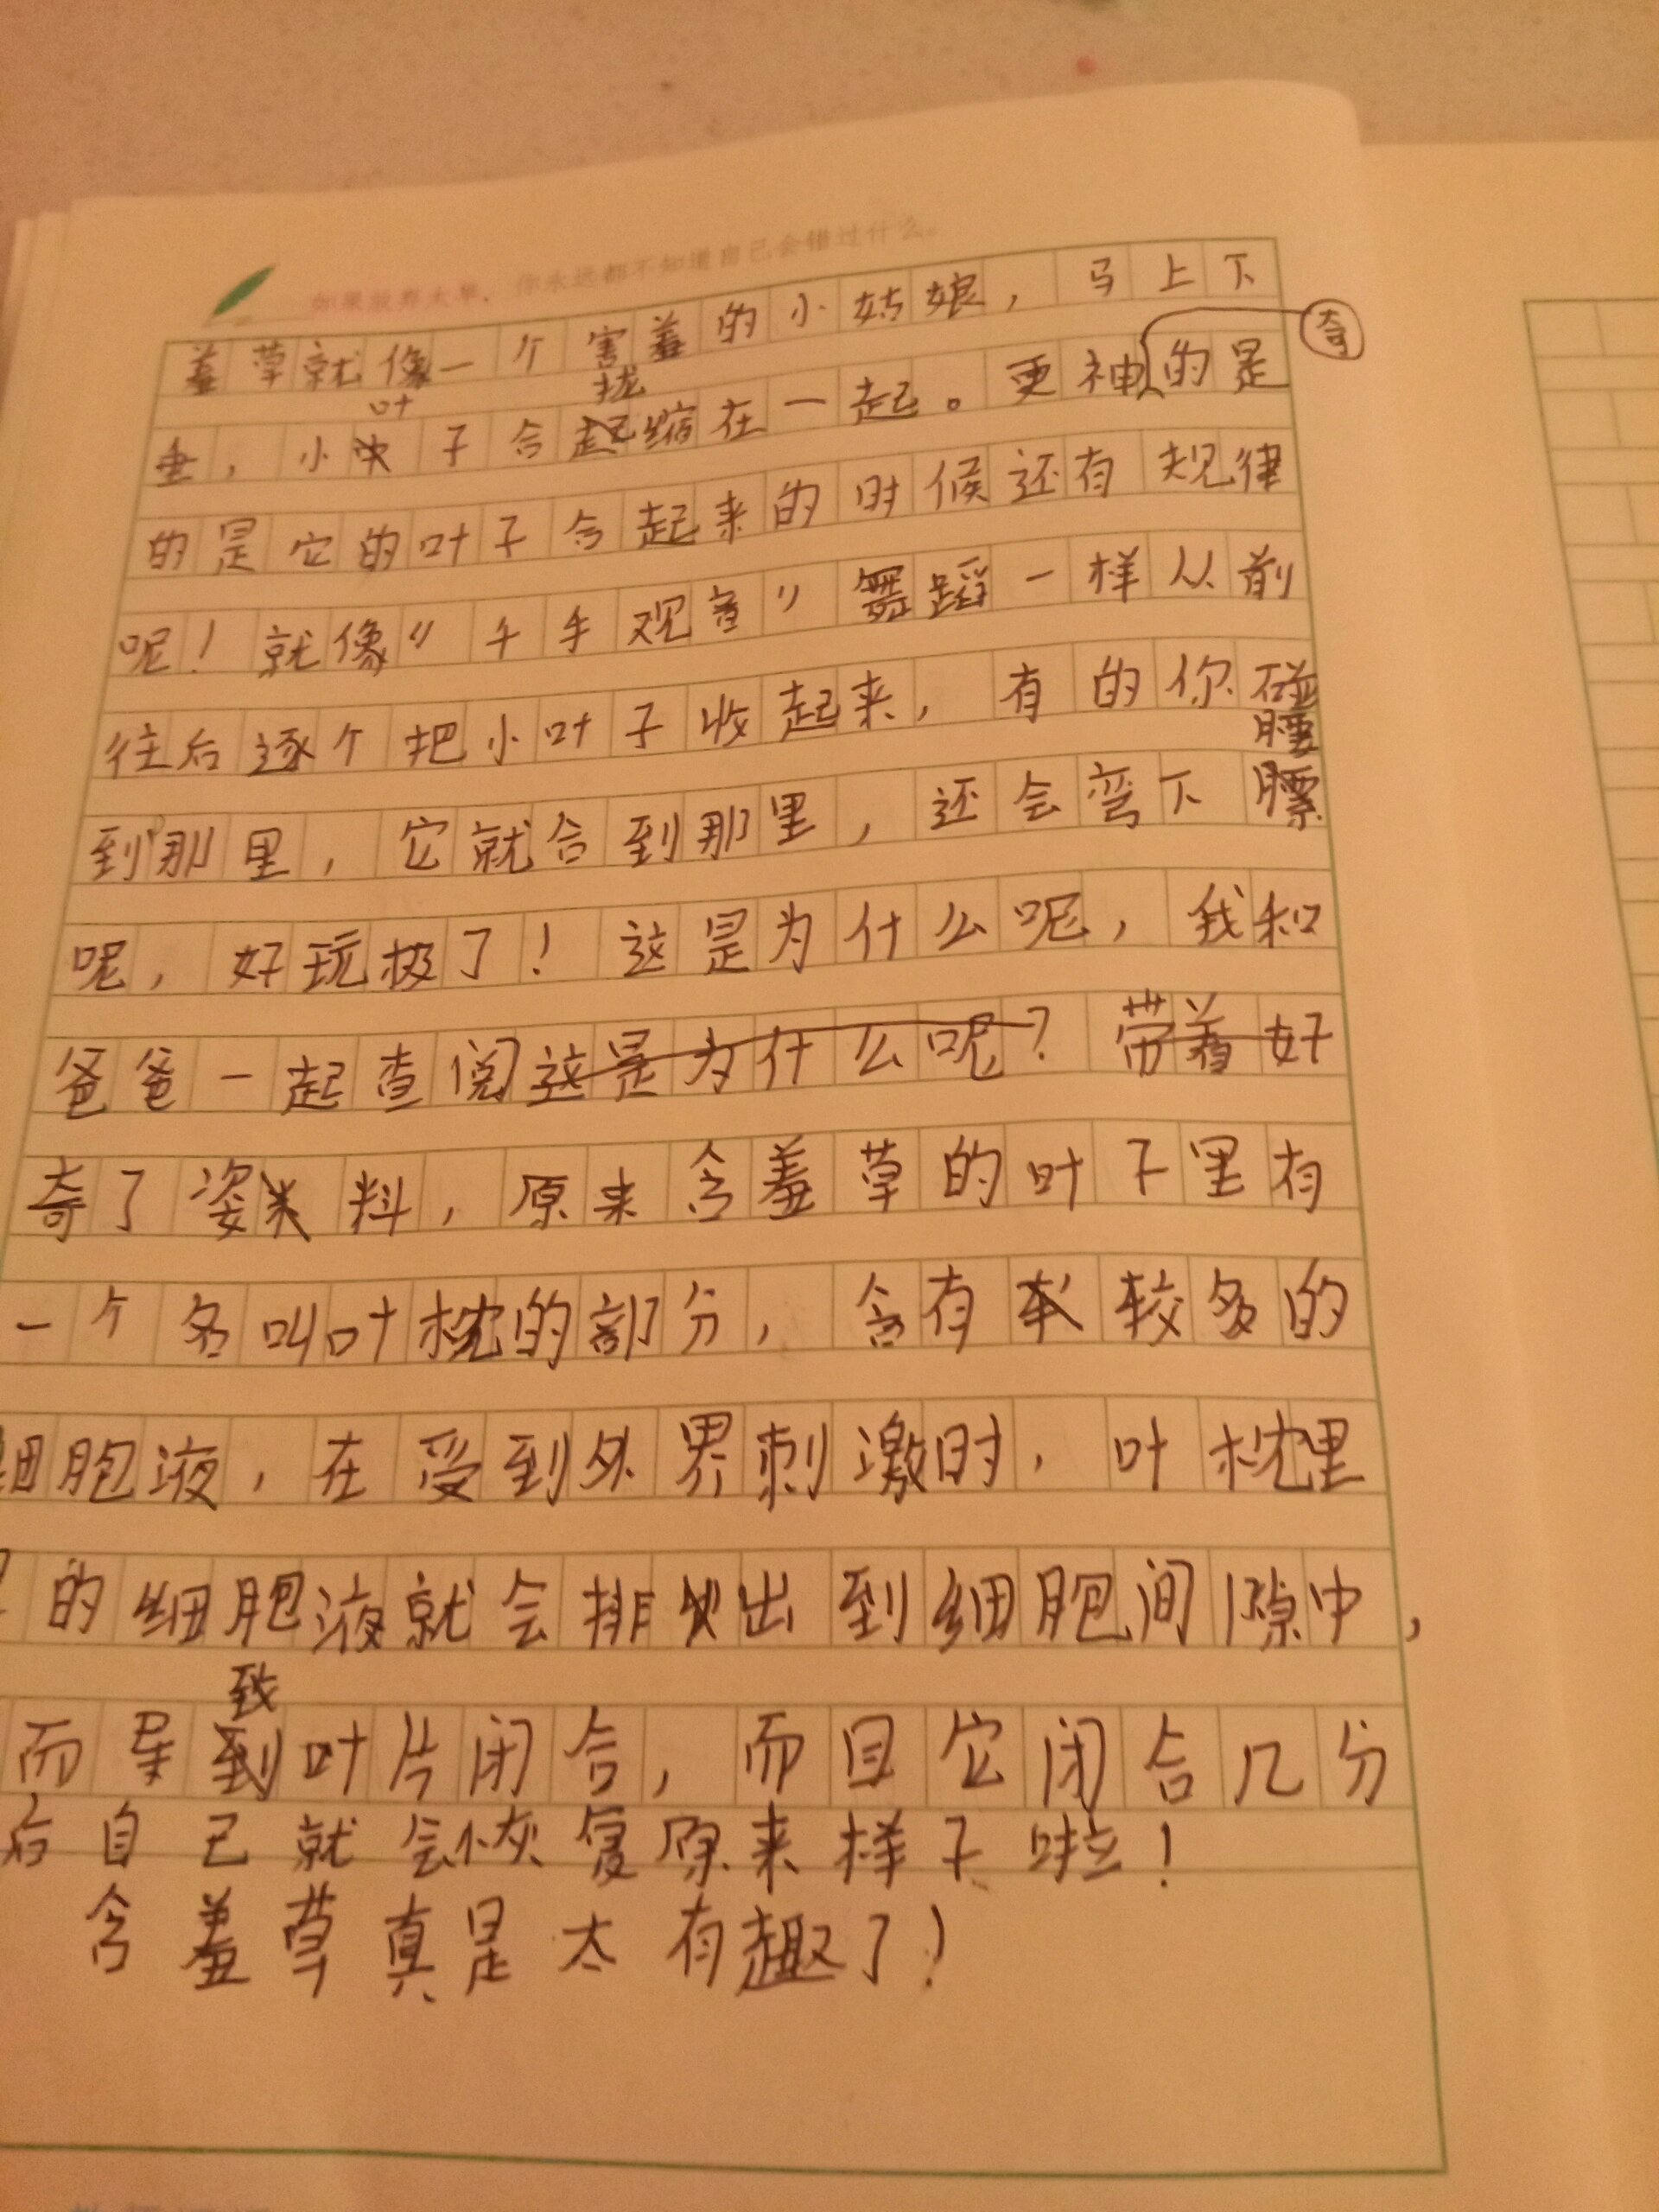 如果放弃太早，你永远都不知道自己会错过什么。
羞草就像一个害羞的小姑娘，马上下
垂，小叶子合拢缩在一起。更神奇的是
的是它的叶子合起来的时候还有规律
呢！就像"千手观音"舞蹈一样从前
往后逐个把小叶子收起来，有的你碰
到那里，它就合到那里，还会弯下腰
呢，好玩极了！这是为什么呢，我和
爸爸一起查阅这是为什么呢？带着好
奇了资料，原来含羞草的叶子里有
一个名叫叶枕的部分，含有较多的
细胞液，在受到外界刺激时，叶枕里
的细胞液就会排出到细胞间隙中，
而导致叶片闭合，而且它闭合几分
后自己就会恢复原来样子啦！
含羞草真是太有趣了！